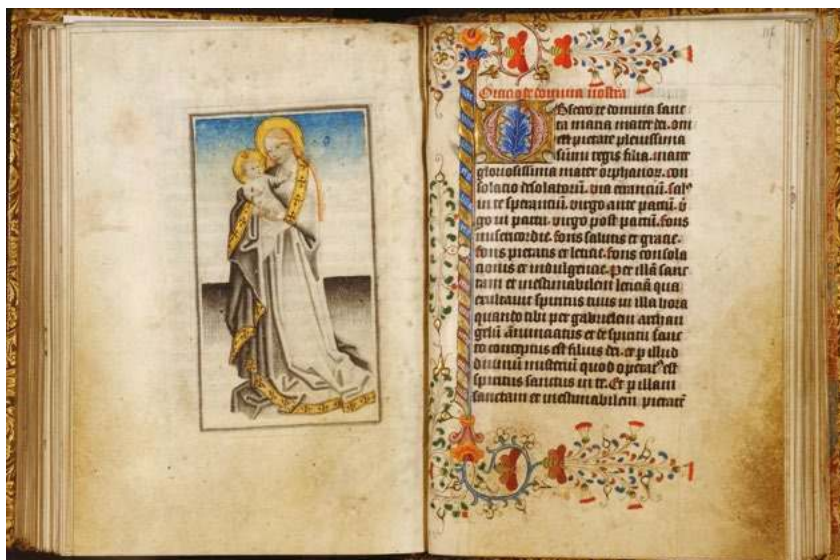 Oracio de domina nostra
Obsecro te domina sanc
ta maria mater dei. om
pietate plenissima
sumi regis filia. mater
gloriosissima mater orphanor. con
solacio desolatoru. via erranciu. sal
in te speranciu. virgo ante partu. v
go in partu. virgo post partu. fons
misericordie. fons salutis et gracie.
fons pietatis et leticie. fons consola
cionis et indulgencie. Per illa sanc
tam et inestimabilem leticia qua
exultavit spiritus tuus in illa hora
quando tibi per gabrielem archan
gelu anunciatus et de spiritu sanc
to conceptus est filius dei. et p illud
divinu misteriu quod operat est
spiritus sanctus in te. Et p illam
sanctam et inestimabilem pietate